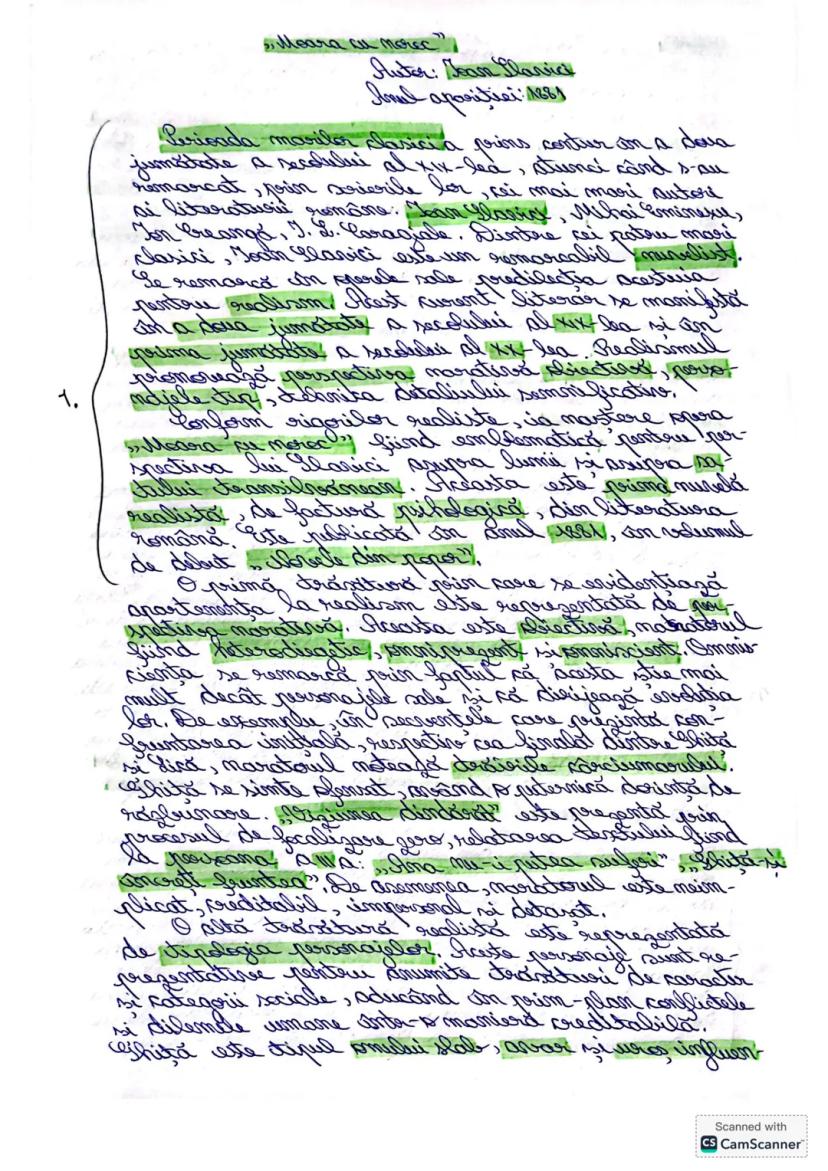 „Moara cu noroc”
Autor: Ioan Slavici
Anul apariției: 1881
Perioada marilor clasici a prins contur în a doua
jumătate a secolului al XIX-lea, atunci când s-au
remarcat, prin scrierile lor, cei mai mari autori
ai literaturii române: Ioan Slavici, Mihai Eminescu,
Ion Creangă, I. L. Caragiale. Dintre cei patru mari
clasici, Ioan Slavici este un remarcabil nuvelist.
Se remarcă în operele sale predilecția acestuia
pentru realism. Acest curent literar se manifestă
în a doua jumătate a secolului al XIX-lea și în
prima jumătate a secolului al XX-lea. Realismul
promovează perspectiva narativă obiectivă, perso-
najele tip, tehnica detaliului semnificativ.
1.
Conform rigorilor realiste, ia naștere opera
„Moara cu noroc” fiind emblematică pentru per-
spectiva lui Slavici asupra lumii și asupra sa-
tului transilvănean. Aceasta este prima nuvelă
realistă, de factură psihologică, din literatura
română. Este publicată în anul 1881, în volumul
de debut „Novele din popor”.
O primă trăsătură prin care se evidențiază
apartenența la realism este reprezentată de per-
spectiva narativă. Aceasta este obiectivă, naratorul
fiind heterodiegetic, omniprezent și omniscient. Omnis-
ciența se remarcă prin faptul că acesta știe mai
mult decât personajele sale și că dirijează evoluția
lor. De exemplu, în secvențele care prezintă con-
fruntarea inițială, respectiv cea finală dintre Ghiță
și Lică, naratorul notează trăirile cârciumarului.
Ghiță se simte ofensat, având o puternică dorință de
răzbunare. „Viziunea dindărăt” este prezentă prin
procesul de focalizare zero, relatarea textului fiind
la persoana a III a: „Ana nu-i putea suferi”, „Ghiță-și
încreți fruntea”. De asemenea, naratorul este neim-
plicat, creditabil, impersonal și detașat.
O altă trăsătură realistă este reprezentată
de tipologia personajelor. Aceste personaje sunt re-
prezentative pentru anumite trăsături de caracter
și categorii sociale, aducând în prim-plan conflictele
și dilemele umane într-o manieră creditabilă.
Ghiță este tipul omului slab, avar și ușor influen-
Scanned with
CS CamScanner